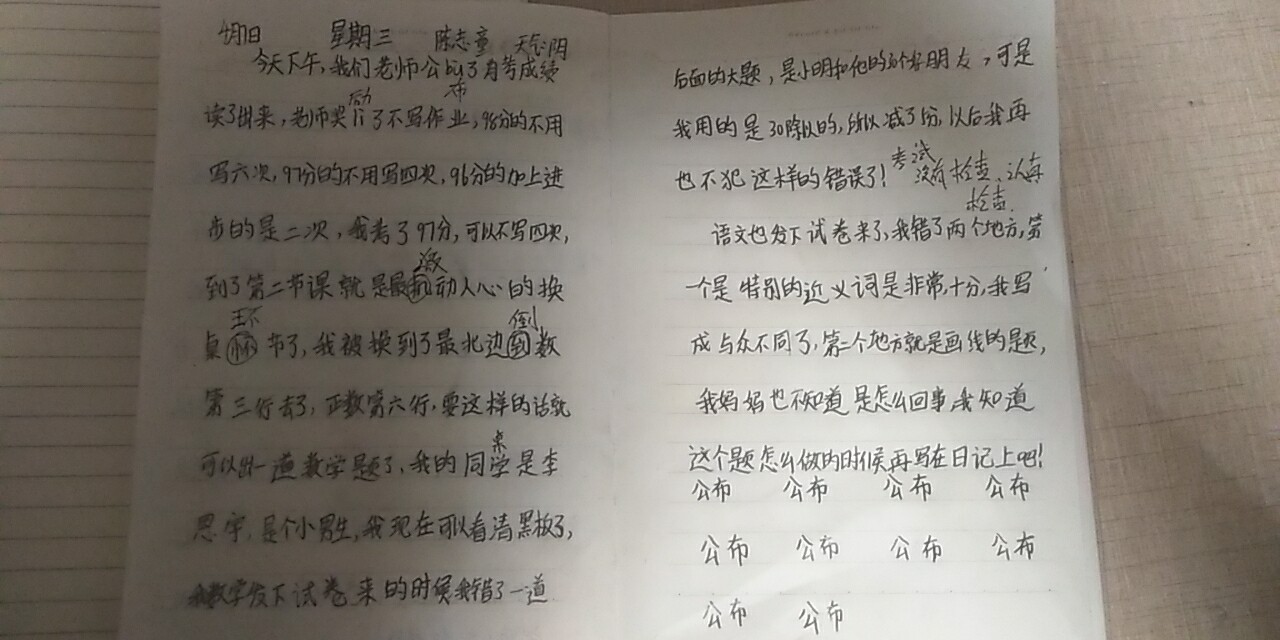 4月1日 星期三 陈志童 天气阴
今天下午,我们老师公布了月考成绩
读了出来,老师奖励了不写作业,98分的不用
写六次,97分的不用写四次,96分的加上进
步的是二次,我考了97分,可以不写四次,
到了第二节课就是最激动人心的换
桌环节了,我被换到了最北边倒数
第三行去了,正数第六行,要这样的话就
可以出一道数学题了,我的同桌是李
思宇,是个小男生,我现在可以看清黑板了,
数学发下试卷来的时候我错了一道
后面的大题,是小明和他的3个好朋友,可是
我用的是30除以的,所以减了1分,以后我再
也不犯这样的错误了!考试没有检查,认真
检查.
语文也发下试卷来了,我错了两个地方,第
一个是特别的近义词是非常,十分,我写
成与众不同了,第二个地方就是画线的是题,
我妈妈也不知道是怎么回事,我知道
这个题怎么做的时候再写在日记上吧!
公布 公布 公布 公布
公布 公布 公布 公布
公布 公布